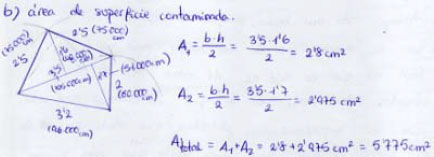 b) área de superficie contaminada.
2'5 (75000 cm)
(75000 cm)
2'5
1'6
(48000 cm)
3'5
(105000 cm)
1'7
(51000 cm)
2
(60000 cm)
3'2
(96000 cm)
A₁ = b·h / 2 = 3'5·1'6 / 2 = 2'8 cm²
A₂ = b·h / 2 = 3'5·1'7 / 2 = 2'975 cm²
Atotal = A₁+A₂ = 2'8+2'975 cm² = 5'775 cm²